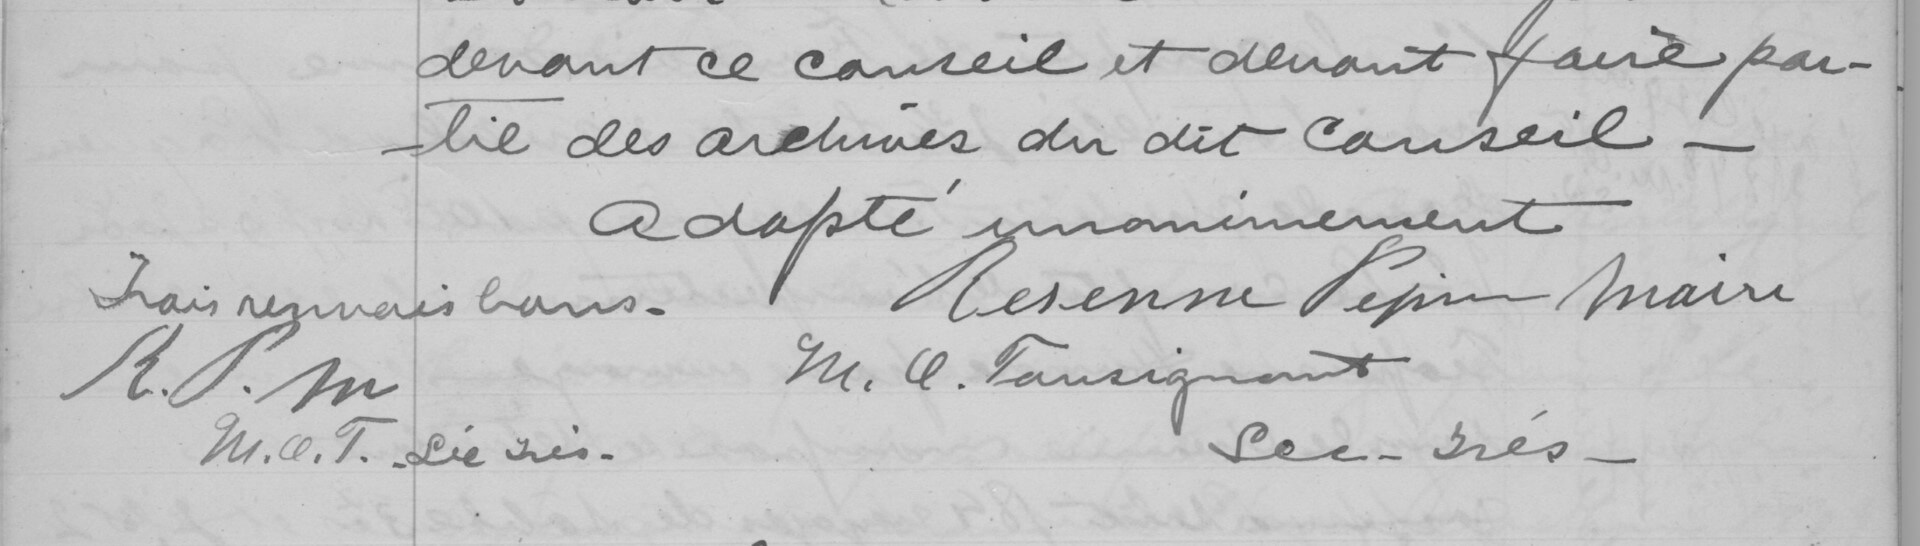 devant ce conseil et devant faire par-
-tie des archives du dit Conseil -
Adopté unanimement
Trois renvois bons. Resenne Pepin Maire
R. P. M M. O. Tousignant
M.O.T. Séc trés. Sec- trés -